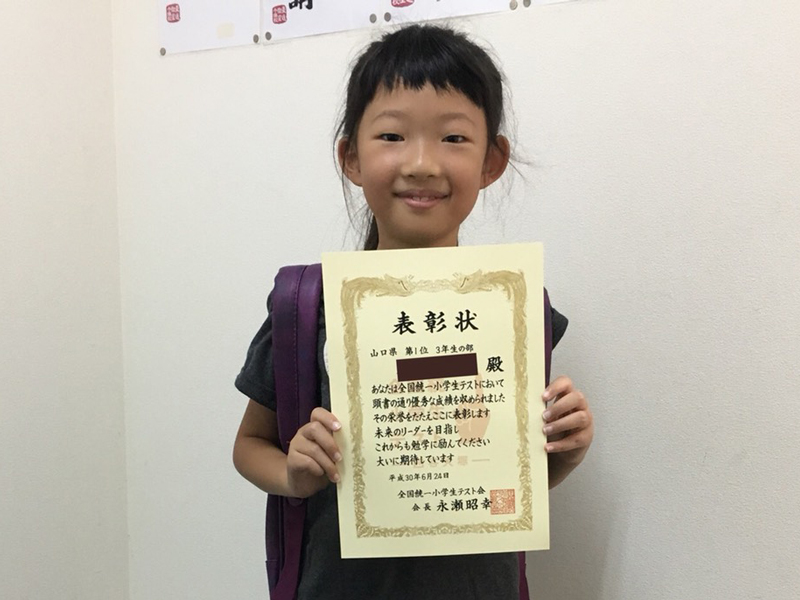 謝
表彰状
山口県 第1位 3年生の部
殿
あなたは全国統一小学生テストにおいて
頭書の通り優秀な成績を収められました
その栄誉をたたえここに表彰します
未来のリーダーを目指し
これからも勉学に励んでください
大いに期待しています
平成30年6月24日
全国統一小学生テスト会
会長 永瀬昭幸